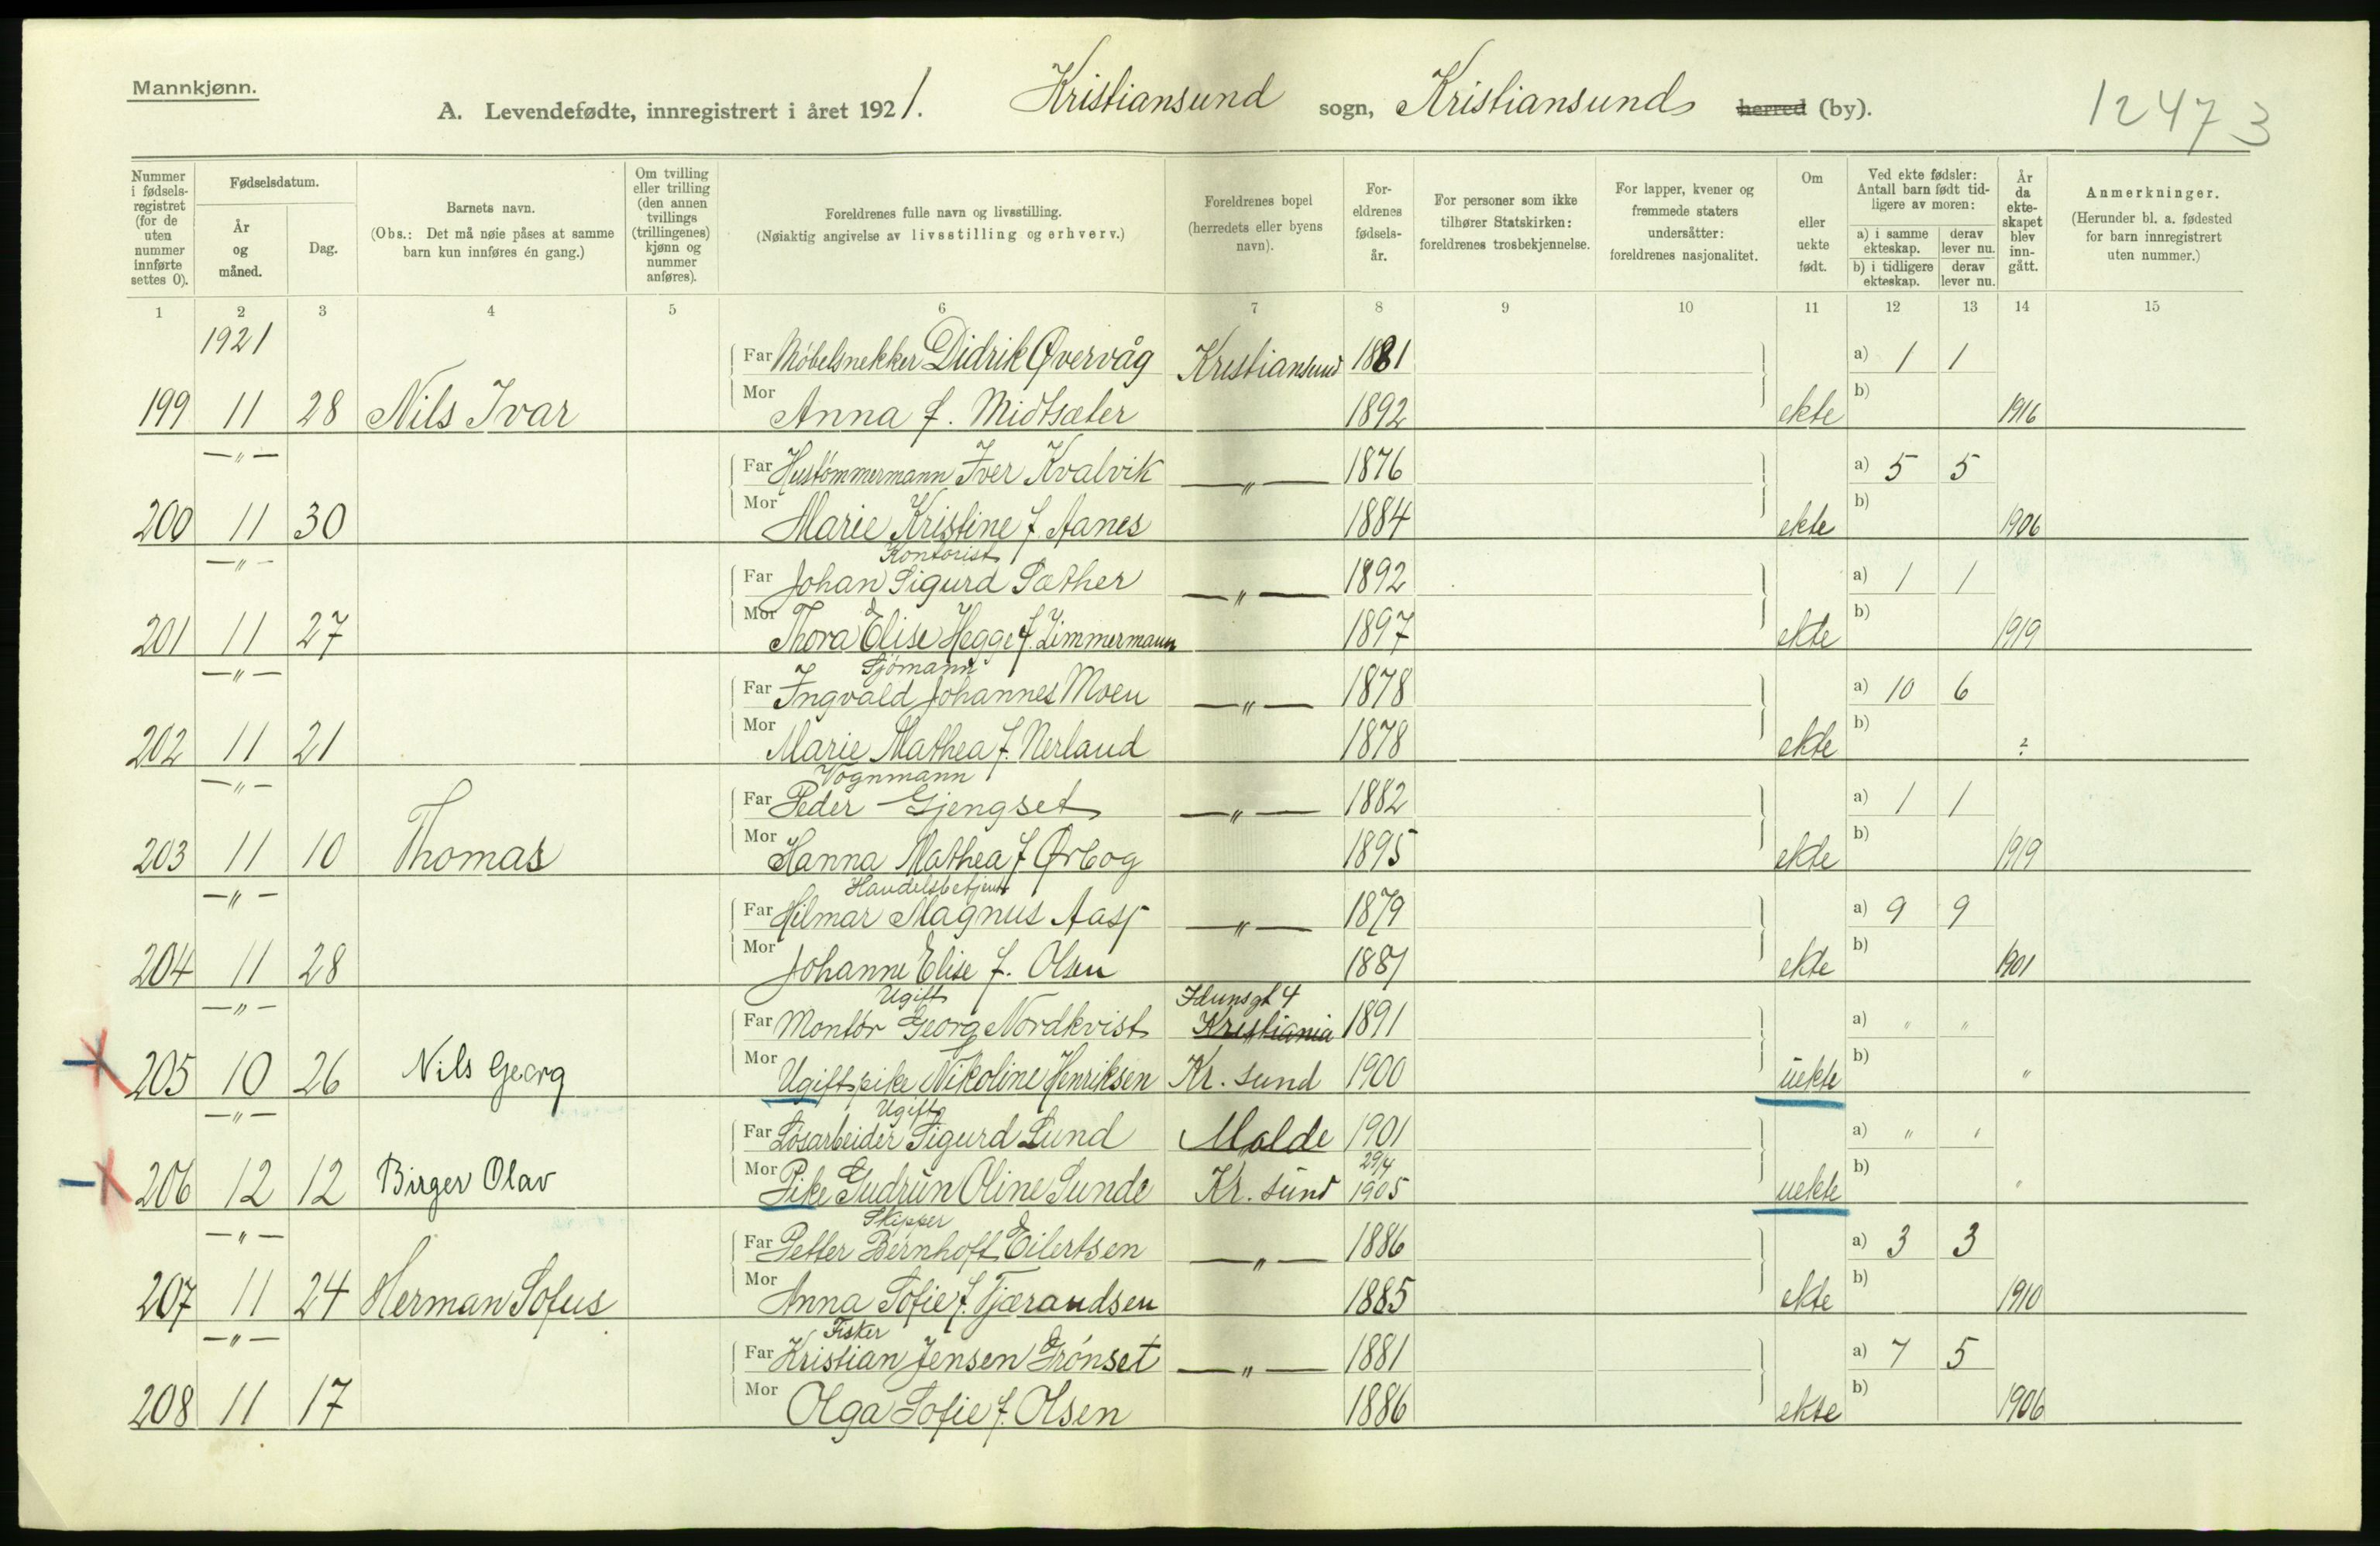 Mannkjønn.
A. Levendefødte, innregistrert i året 1921. Kristiansund sogn, Kristiansund herred (by).
12473
Nummer i fødsels-registret (for de uten nummer innførte settes 0).
Fødselsdatum.
År og måned.
Dag.
Barnets navn.
(Obs.: Det må nøie påses at samme barn kun innføres én gang.)
Om tvilling eller trilling (den annen tvillings (trillingenes) kjønn og nummer anføres).
Foreldrenes fulle navn og livsstilling.
(Nøiaktig angivelse av livsstilling og erhverv.)
Foreldrenes bopel (herredets eller byens navn).
For-eldrenes fødsels-år.
For personer som ikke tilhører Statskirken: foreldrenes trosbekjennelse.
For lapper, kvener og fremmede staters undersåtter: foreldrenes nasjonalitet.
Om eller uekte født.
Ved ekte fødsler: Antall barn født tid-ligere av moren:
a) i samme ekteskap. derav lever nu.
b) i tidligere ekteskap. derav lever nu.
År da ekte-skapet blev inn-gått.
Anmerkninger.
(Herunder bl. a. fødested for barn innregistrert uten nummer.)
1 2 3 4 5 6 7 8 9 10 11 12 13 14 15
1921
Far Møbelsnekker Didrik Øvervåg Kristiansund 1881 a) 1 1
199 11 28 Nils Ivar Mor Anna f. Midtsæter 1892 ekte b) 1916
—"— Far Hustømmermann Iver Kvalvik —"— 1876 a) 5 5
200 11 30 Mor Marie Kristine f. Aanes 1884 ekte b) 1906
Kontorist
—"— Far Johan Sigurd Sæther —"— 1892 a) 1 1
201 11 27 Mor Thora Elise Hegge f. Zimmermann 1897 ekte b) 1919
Sjømann
—"— Far Ingvald Johannes Moen —"— 1878 a) 10 6
202 11 21 Mor Marie Mathea f. Nerland 1878 ekte b) ?
Vognmann
—"— Far Peder Gjengset —"— 1882 a) 1 1
203 11 10 Thomas Mor Hanna Mathea f Ørbog 1895 ekte b) 1919
Handelsbetjent
—"— Far Hilmar Magnus Aasp —"— 1879 a) 9 9
204 11 28 Mor Johanne Elise f. Olsen 1881 ekte b) 1901
Ugift Idunsgt 4
—"— Far Montør Georg Nordkvist Kristiania 1891 a) " "
205 10 26 Nils Georg Mor Ugift pike Nikoline Henriksen Kr. sund 1900 uekte b) "
Ugift
—"— Far Løsarbeider Sigurd Lund Molde 1901 a) " "
29/4
206 12 12 Birger Olav Mor Pike Gudrun Oline Sunde Kr. sund 1905 uekte b) "
Skipper
—"— Far Petter Bernhoft Eilertsen —"— 1886 a) 3 3
207 11 24 Herman Sofus Mor Anna Sofie f. Tjærandsen 1885 ekte b) 1910
Fisker
—"— Far Kristian Jensen Grønset —"— 1881 a) 7 5
208 11 17 Mor Olga Sofie f. Olsen 1886 ekte b) 1906